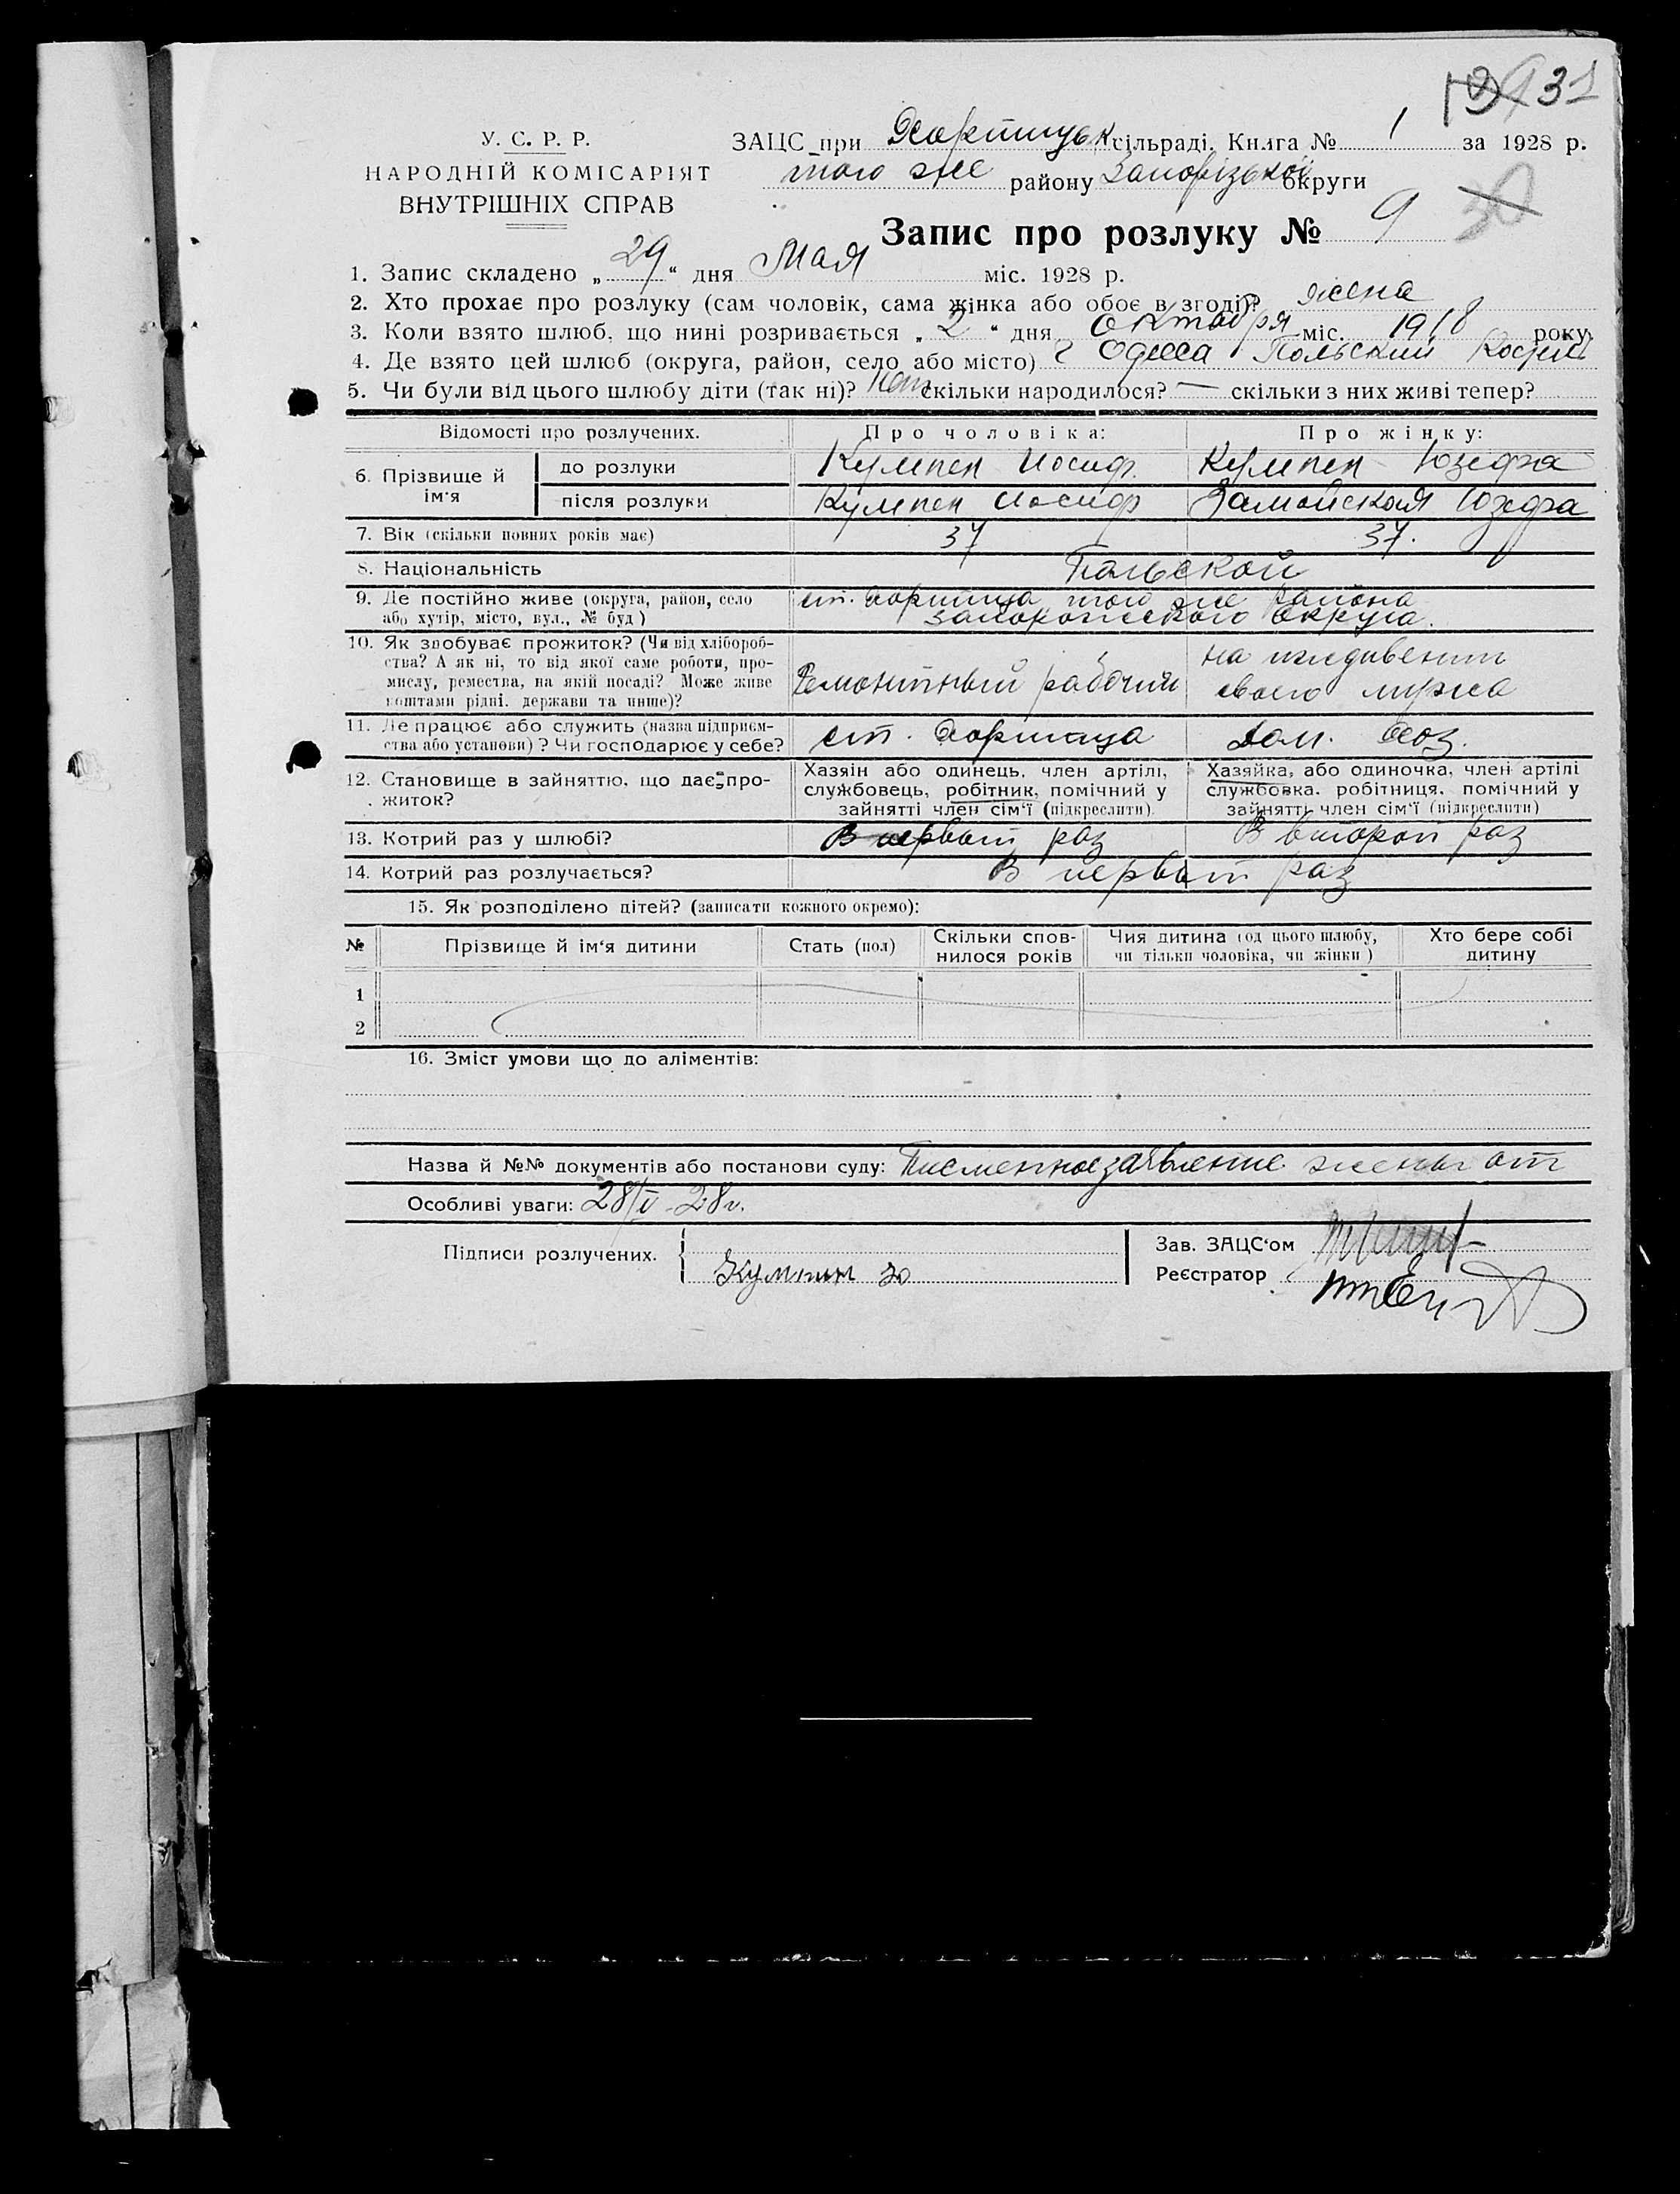 31
У. С. Р. Р.
НАРОДНІЙ КОМІСАРІЯТ
ВНУТРІШНІХ СПРАВ
ЗАЦС при Хортицьк сільраді. Книга № 1 за 1928 р.
того же району Запорізькой округи
30
Запис про розлуку № 9
1. Запис складено „ 29 “ дня Мая міс. 1928 р.
2. Хто прохає про розлуку (сам чоловік, сама жінка або обоє в згоді)? жена
3. Коли взято шлюб, що нині розривається „ 2 “ дня Октября міс. 1918 року
4. Де взято цей шлюб (округа, район, село або місто) г Одесса Польский Костел
5. Чи були від цього шлюбу діти (так ні)? Нет скільки народилося? — скільки з них живі тепер?
Відомості про розлучених. Про чоловіка: Про жінку:
6. Прізвище й ім'я до розлуки Кумпен Иосиф. Кумпен Юзефа
після розлуки Кумпен Иосиф Замойская Юзефа
7. Вік (скільки повних років має) 37 37.
8. Національність Польской
9. Де постійно живе (округа, район, село ст. Хортица того же района
або хутір, місто, вул., № буд) Запорожского Округа.
10. Як здобуває прожиток? (Чи від хлібороб-
ства? А як ні, то від якої саме роботи, про-
мислу, ремества, на якій посаді? Може живе
коштами рідні, держави та инше)?
Ремонтный рабочий
на иждивении
своего мужа
11. Де працює або служить (назва підприєм-
ства або установи)? Чи господарює у себе?
ст. Хортица Дом. Хоз.
12. Становище в зайняттю, що дає про-
житок?
Хазяїн або одинець, член артілі,
службовець, робітник, помічний у
зайнятті член сім'ї (підкреслити).
Хазяйка, або одиночка, член артілі
службовка, робітниця, помічний у
зайнятті член сім'ї (підкреслити)
13. Котрий раз у шлюбі? В первый раз В второй раз
14. Котрий раз розлучається? В первый раз
15. Як розподілено дітей? (записати кожного окремо):
№ Прізвище й ім'я дитини Стать (пол) Скільки спов-
нилося років Чия дитина (од цього шлюбу,
чи тільки чоловіка, чи жінки) Хто бере собі
дитину
1
2
16. Зміст умови що до аліментів:
Назва й №№ документів або постанови суду: Письменное заявление жены от
Особливі уваги: 28/V-28г.
Підписи розлучених. Кумпен Ю
Зав. ЗАЦС'ом
Реєстратор